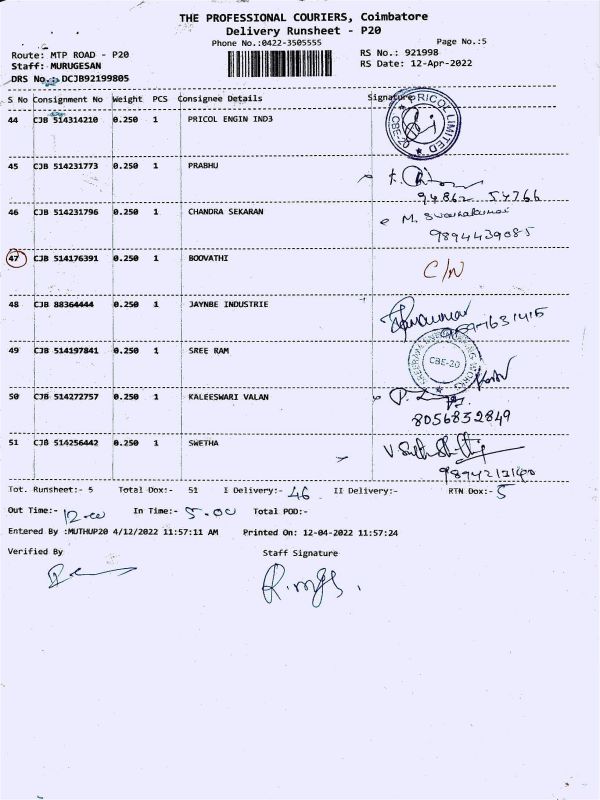 THE PROFESSIONAL COURIERS, Coimbatore
Delivery Runsheet - P20
Phone No.:0422-3505555
Page No.:5
Route: MTP ROAD - P20
RS No.: 921998
Staff: MURUGESAN
RS Date: 12-Apr-2022
DRS No.: DCJB92199805
S No Consignment No Weight PCS Consignee Details Signature
44 CJB 514314210 0.250 1 PRICOL ENGIN IND3
PRICOL LIMITED CBE-20
45 CJB 514231773 0.250 1 PRABHU
94862 54766
46 CJB 514231796 0.250 1 CHANDRA SEKARAN
9894439085
47 CJB 514176391 0.250 1 BOOVATHI C/N
48 CJB 88364444 0.250 1 JAYNBE INDUSTRIE
49 CJB 514197841 0.250 1 SREE RAM
CBE-20
50 CJB 514272757 0.250 1 KALEESWARI VALAN
8056832849
51 CJB 514256442 0.250 1 SWETHA
Tot. Runsheet:- 5 Total Dox:- 51 I Delivery:- 46 II Delivery:- RTN Dox:- 5
Out Time:- 12.00 In Time:- 5.00 Total POD:-
Entered By :MUTHUP20 4/12/2022 11:57:11 AM Printed On: 12-04-2022 11:57:24
Verified By Staff Signature